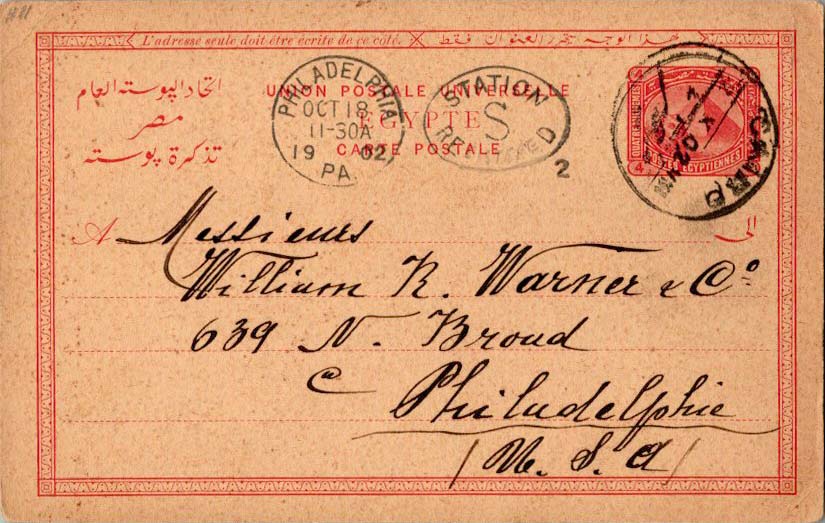 L'adresse seule doit être écrite de ce côté.
هذا الوجه يتحرر العنوان فقط
اتحاد البوسته العام
مصر
تذكرة بوسته
UNION POSTALE UNIVERSELLE
EGYPTE
CARTE POSTALE
PHILADELPHIA
OCT 18
11-30A
19 02
PA.
STATION
S
RECEIVED
2
QUATRE MILLIEMES
POSTES EGYPTIENNES
4
CAIRO
A
الى
Messieurs
William R. Warner & Co
639 N. Broad
a Philadelphie
(U. S. A)